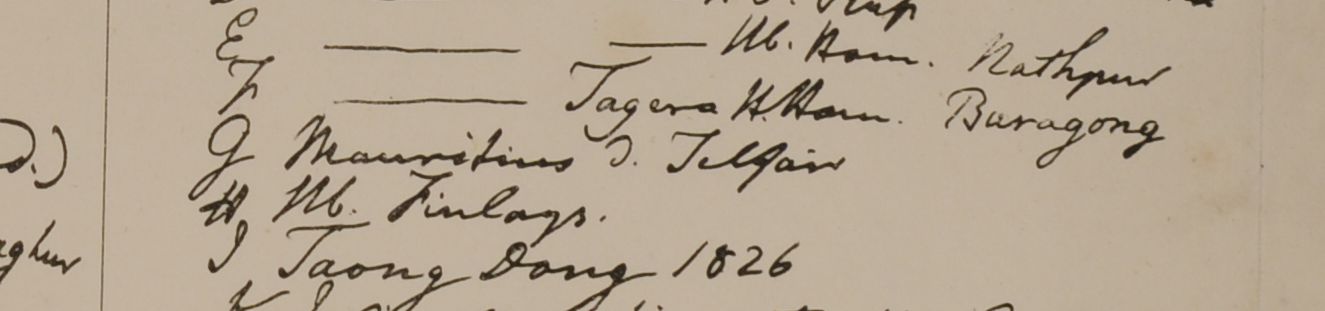 E ——— —— Hb. Ham. Nathpur
F ——— Tagera H. Ham. Baragong
G Mauritius D. Telfair
H Hb. Finlays.
I Taong Dong 1826